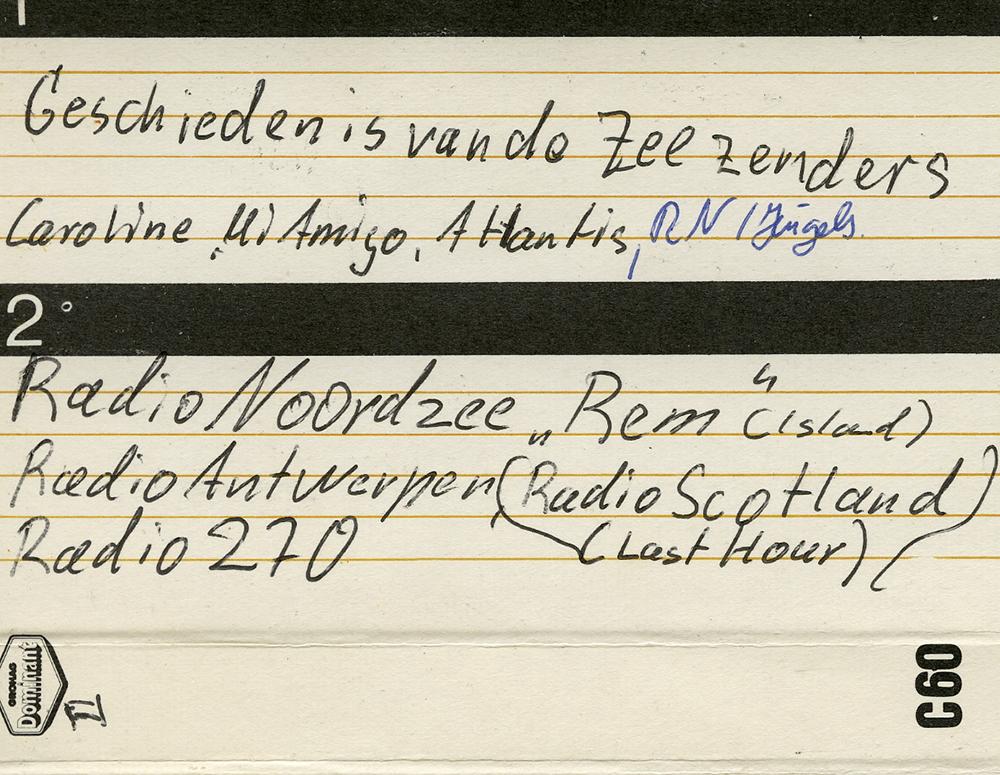 1
Geschiedenis van de Zeezenders
Caroline, Mi Amigo, Atlantis, RN / Jingels.
2
Radio Noordzee „Rem" (Island)
Radio Antwerpen (Radio Scotland)
Radio 270 (Last Hour)
GRONAG
Dominant
II
C60